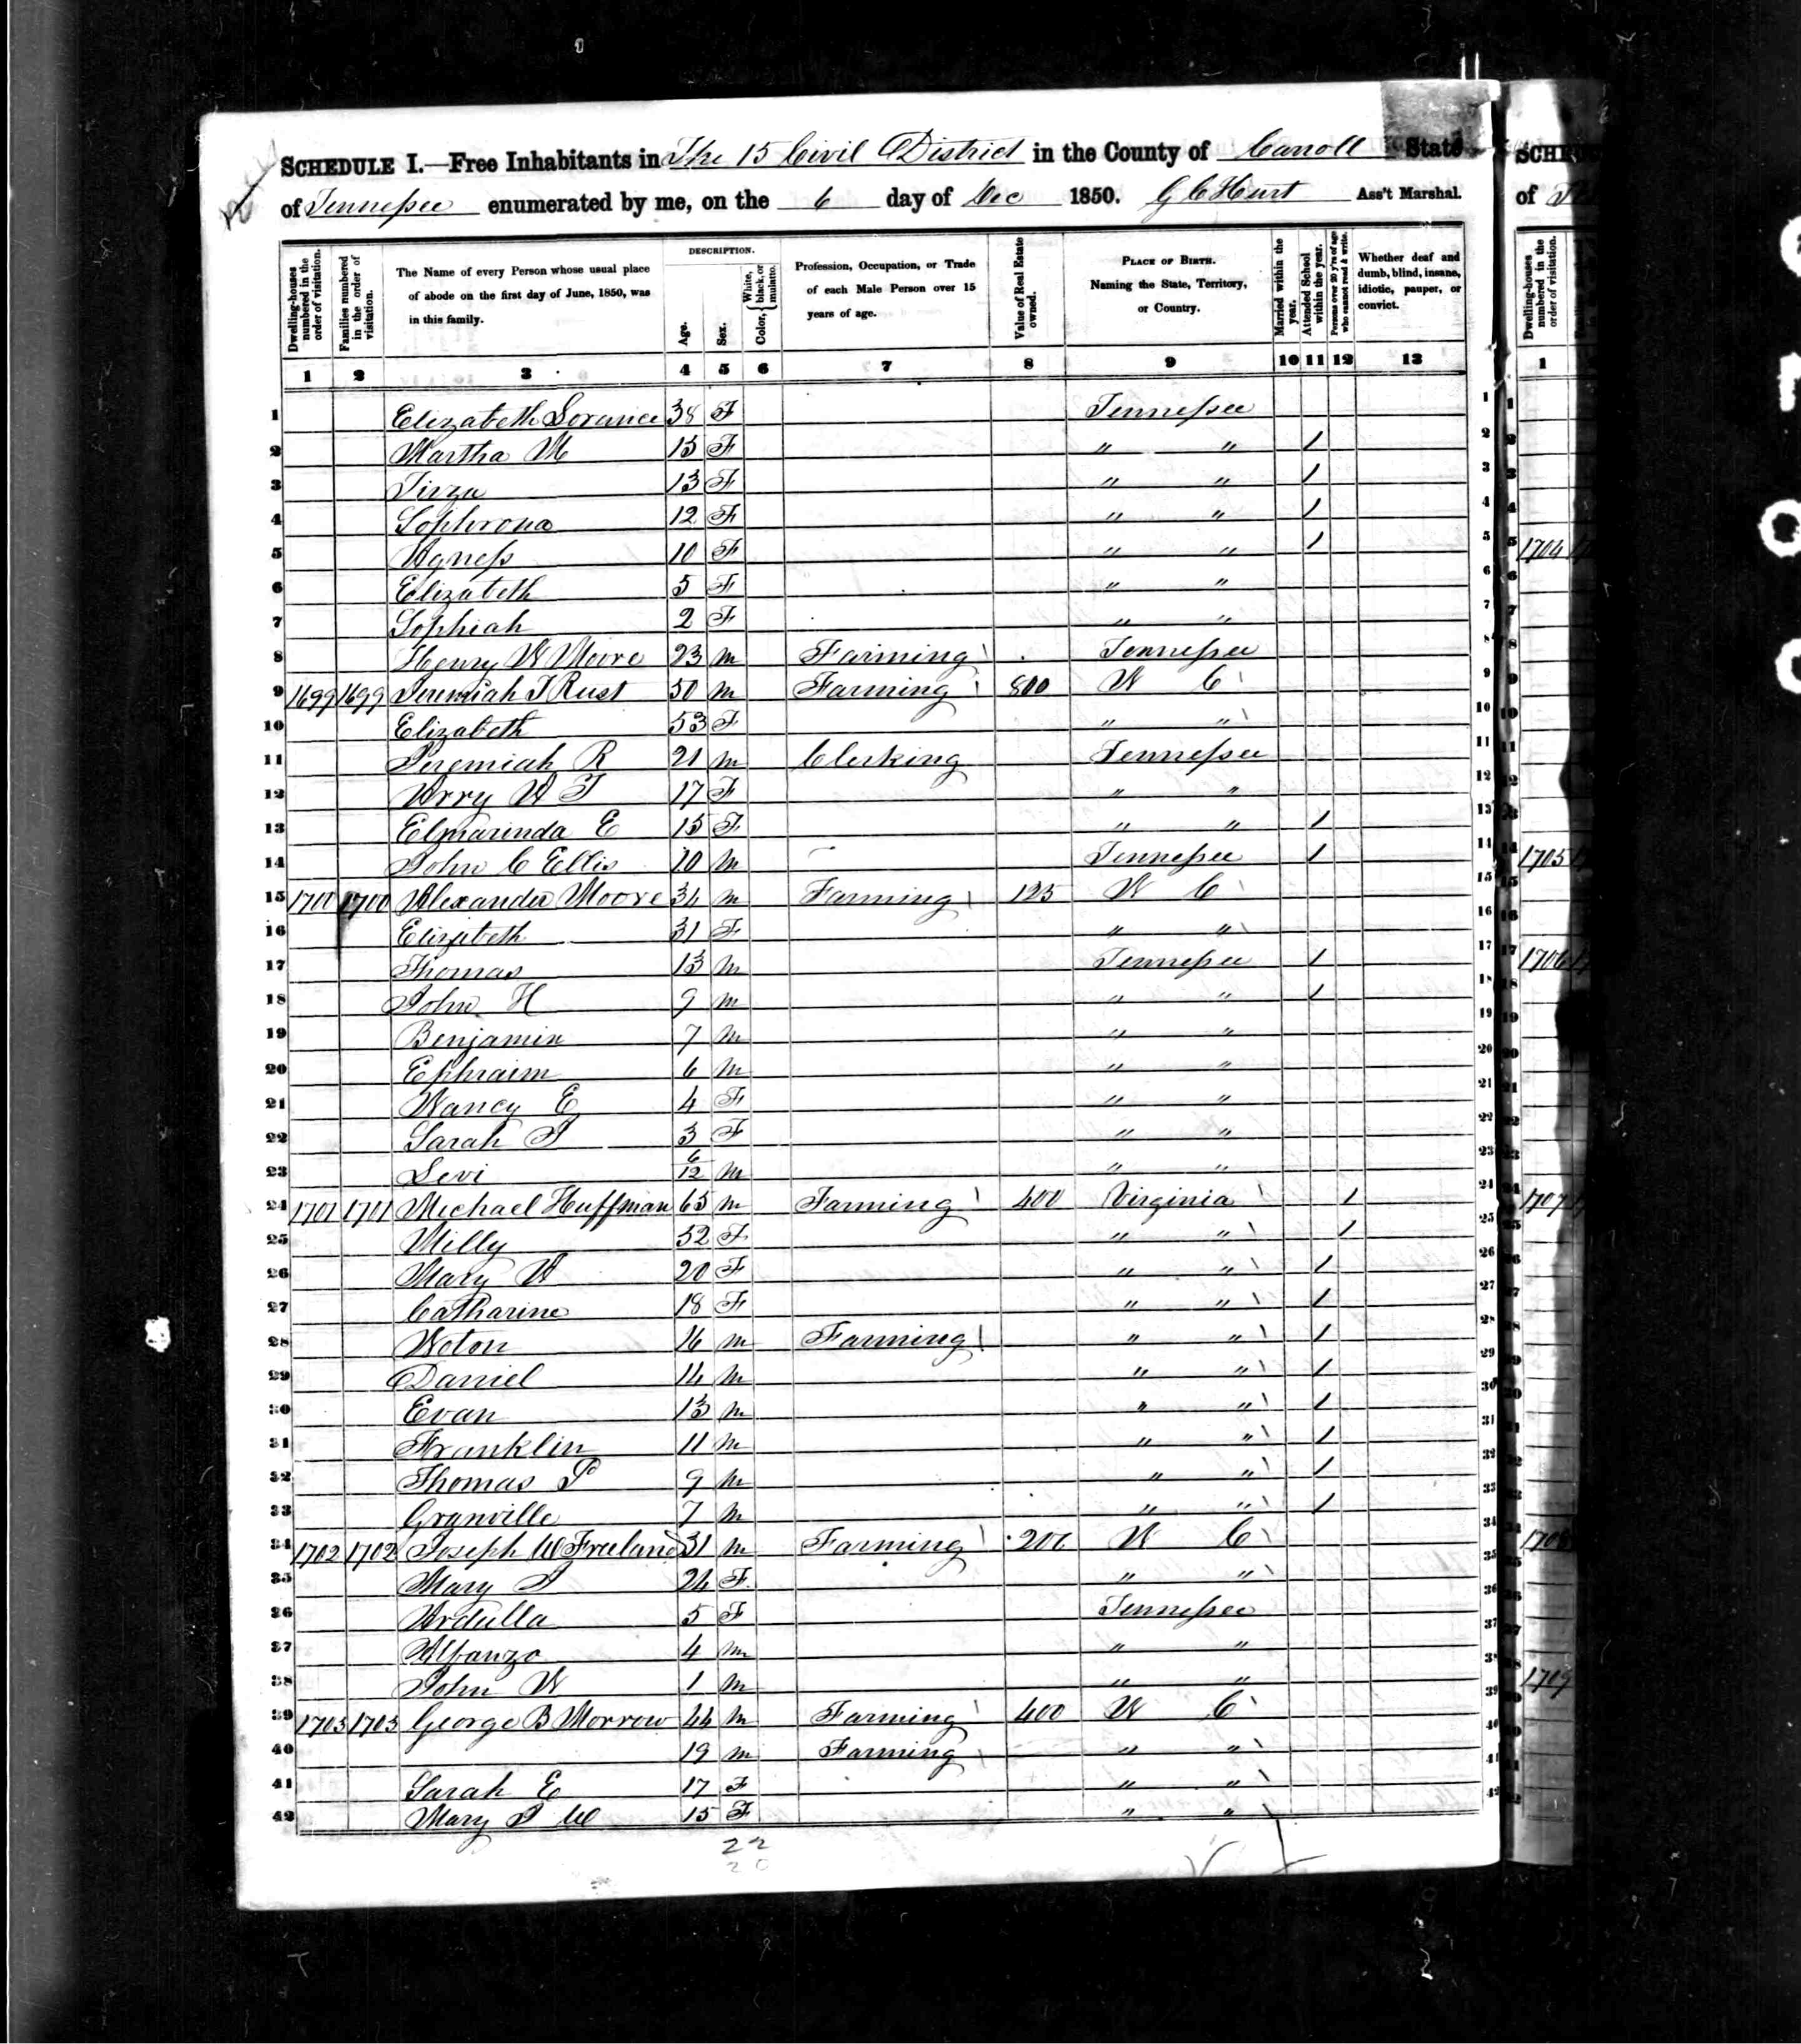 SCHEDULE I.—Free Inhabitants in The 15 Civil District in the County of Carroll State
of Tennessee enumerated by me, on the 6 day of Dec 1850. G C Hurt Ass't Marshal.
Dwelling-houses numbered in the order of visitation. Families numbered in the order of visitation. The Name of every Person whose usual place of abode on the first day of June, 1850, was in this family. DESCRIPTION. Age. Sex. Color, { White, black, or mulatto. Profession, Occupation, or Trade of each Male Person over 15 years of age. Value of Real Estate owned. PLACE OF BIRTH. Naming the State, Territory, or Country. Married within the year. Attended School within the year. Persons over 20 y'rs of age who cannot read & write. Whether deaf and dumb, blind, insane, idiotic, pauper, or convict.
1 2 3 4 5 6 7 8 9 10 11 12 13
1 Elizabeth Lorance 38 F Tennessee 1
2 Martha M 15 F " " / 2
3 Tirza 13 F " " / 3
4 Sophrona 12 F " " / 4
5 Agness 10 F " " / 5
6 Elizabeth 5 F " " 6
7 Sophiah 2 F " " 7
8 Henry W Moore 23 m Farming Tennessee 8
9 1699 1699 Jeremiah T Rust 50 m Farming 800 N C 9
10 Elizabeth 53 F " " 10
11 Jeremiah R 21 m Clerking Tennessee 11
12 Arry W T 17 F " " 12
13 Elmarinda E 15 F " " / 13
14 John C Ellis 10 m Tennessee / 14
15 1700 1700 Alexander Moore 34 m Farming 125 N C 15
16 Elizabeth 31 F " " 16
17 Thomas 13 m Tennessee / 17
18 John H 9 m " " / 18
19 Benjamin 7 m " " 19
20 Ephraim 6 m " " 20
21 Nancy E 4 F " " 21
22 Sarah J 3 F " " 22
23 Levi 6/12 m " " 23
24 1701 1701 Michael Huffman 65 m Farming 400 Virginia / 24
25 Milly 52 F " " / 25
26 Mary A 20 F " " / 26
27 Catharine 18 F " " / 27
28 Noton 16 m Farming " " / 28
29 Daniel 14 m " " / 29
30 Evan 13 m " " / 30
31 Franklin 11 m " " / 31
32 Thomas P 9 m " " / 32
33 Granville 7 m " " / 33
34 1702 1702 Joseph W Freeland 31 m Farming N C 34
35 Mary J 24 F " " 35
36 Ardulla 5 F Tennessee 36
37 Alfanzo 4 m " " 37
38 John W 1 m " " 38
39 1703 1703 George B Morrow 44 m Farming 400 N C 39
40 19 m Farming " " 40
41 Sarah E 17 F " " 41
42 Mary J W 15 F " " 42
22
20
SCHE
of
Dwelling-houses numbered in the order of visitation.
1
1704
1705
1706
1707
1708
1709